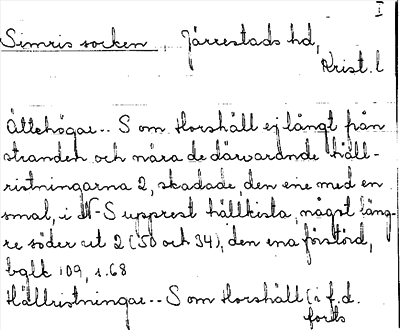 I
Simris socken Järrestads hd,
Krist. l
Ättehögar -- S om Horshäll ej långt från
stranden och nära de därvarande häll-
ristningarna 2, skadade, den ene med en
smal, i N-S upprest hällkista, något läng-
re söder ut 2 (50 och 34), den ena förstörd,
bglk 109, s. 68
Hällristningar -- S om Horshäll (i f.d.
forts